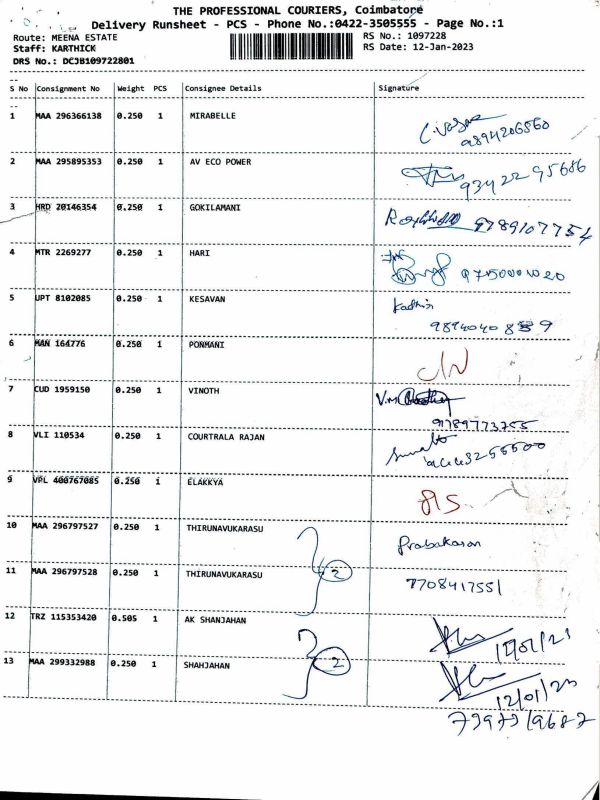 THE PROFESSIONAL COURIERS, Coimbatore
Delivery Runsheet - PCS - Phone No.:0422-3505555 - Page No.:1
Route: MEENA ESTATE RS No.: 1097228
Staff: KARTHICK RS Date: 12-Jan-2023
DRS No.: DCJB109722801
S No Consignment No Weight PCS Consignee Details Signature
1 MAA 296366138 0.250 1 MIRABELLE
9894206560
2 MAA 295895353 0.250 1 AV ECO POWER
93422 95686
3 HRD 20146354 0.250 1 GOKILAMANI 9789107754
4 MTR 2269277 0.250 1 HARI
5 UPT 8102085 0.250 1 KESAVAN
6 MAN 164776 0.250 1 PONMANI
C/N
7 CUD 1959150 0.250 1 VINOTH
9789773755
8 VLI 110534 0.250 1 COURTRALA RAJAN
9 VPL 400767085 0.250 1 ELAKKYA
10 MAA 296797527 0.250 1 THIRUNAVUKARASU Prabakaran
11 MAA 296797528 0.250 1 THIRUNAVUKARASU 2 7708417551
12 TRZ 115353420 0.505 1 AK SHANJAHAN
12/01/23
13 MAA 299332988 0.250 1 SHAHJAHAN 2
12/01/23